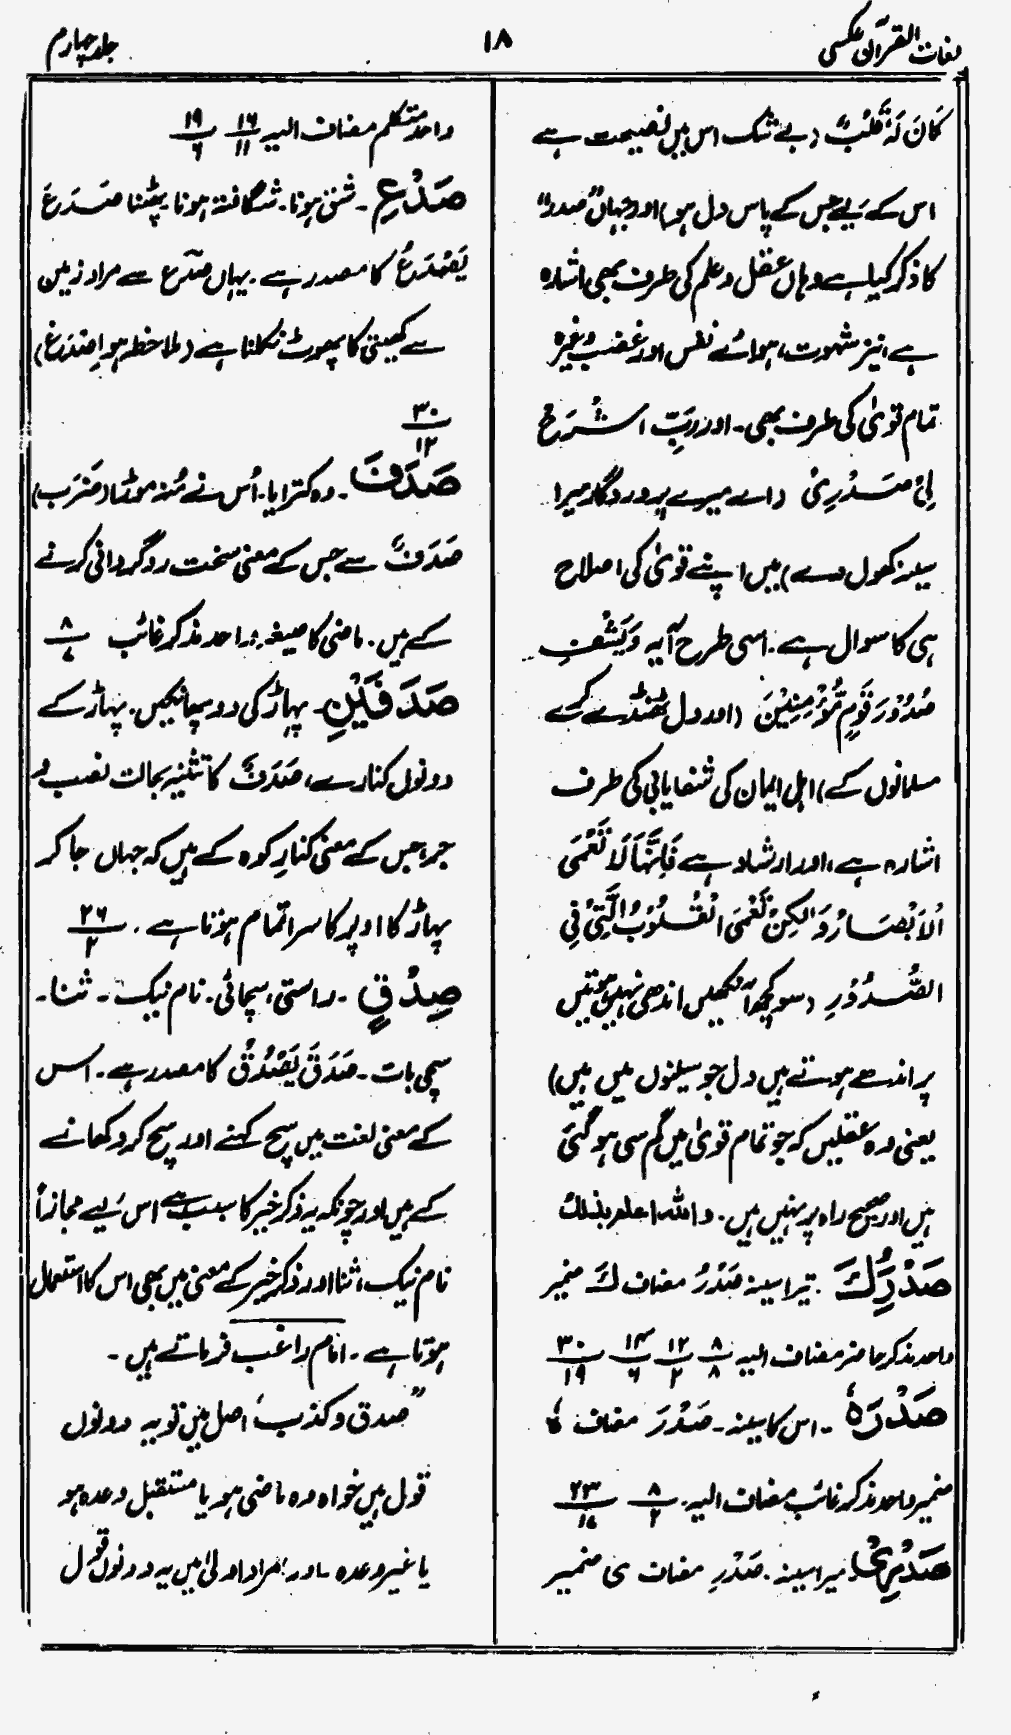 لغات القرآن عکسی
۱۸
جلد چہارم
كَانَ لَهٗ قَلْبٌ (بے شک اس میں نصیحت ہے
اس کے لیے جس کے پاس دل ہو) اور جہاں "صدر"
کا ذکر کیا ہے وہاں عقل و علم کی طرف بھی اشارہ
ہے، نیز شہوت، ہوائے نفس اور غضب وغیرہ
تمام قویٰ کی طرف بھی۔ اور رَبِّ اشْرَحْ
لِيْ صَدْرِيْ (اے میرے پروردگار میرا
سینہ کھول دے) میں اپنے قویٰ کی اصلاح
ہی کا سوال ہے۔ اسی طرح آیہ وَيَشْفِ
صُدُوْرَ قَوْمٍ مُّؤْمِنِيْنَ (اور دل ٹھنڈے کرے
مسلمانوں کے) اہل ایمان کی شفایابی کی طرف
اشارہ ہے، اور ارشاد ہے فَاِنَّهَا لَا تَعْمَى
الْاَبْصَارُ وَلٰكِنْ تَعْمَى الْقُلُوْبُ الَّتِيْ فِي
الصُّدُوْرِ (سو کچھ آنکھیں اندھی نہیں ہوتیں
پر اندھے ہوتے ہیں دل جو سینوں میں ہیں)
یعنی وہ عقلیں کہ جو تمام قویٰ میں گم سی ہو گئی
ہیں اور صحیح راہ پر نہیں ہیں۔ واللہ اعلم بذلك
صَدْرُكَ۔ تیرا سینہ صَدْرُ مضاف كَ ضمیر
واحد مذکر حاضر مضاف الیہ ۸/۸ ۱۲/۲ ۱۴/۶ ۳۰/۱۹
صَدْرَهٗ۔ اس کا سینہ۔ صَدْرَ مضاف هٗ
ضمیر واحد مذکر غائب مضاف الیہ۔ ۸/۲ ۲۳/۱۷
صَدْرِيْ۔ میرا سینہ۔ صَدْرِ مضاف ی ضمیر
واحد متکلم مضاف الیہ ۱۶/۱۱ ۱۹/۶
صَدْعِ۔ شق ہونا۔ شگافتہ ہونا پھٹنا صَدَعَ
يَصْدَعُ کا مصدر ہے۔ یہاں صدع سے مراد زمین
سے کھیتی کا پھوٹ نکلنا ہے (ملاحظہ ہو اِصْدَعْ)
۳۰/۱۲
صَدَفَ۔ وہ کترایا۔ اُس نے مُنہ موڑا (ضَرَبَ)
صَدَفٌ سے جس کے معنی سخت روگردانی کرنے
کے ہیں۔ ماضی کا صیغہ واحد مذکر غائب ۸/۷
صَدَفَيْنِ۔ پہاڑ کی دو پھانکیں۔ پہاڑ کے
دونوں کنارے، صَدَفٌ کا تثنیہ بحالت نصب و
جر، جس کے معنی کنارِ کوہ کے ہیں کہ جہاں جا کر
پہاڑ کا اوپر کا سرا تمام ہوتا ہے۔ ۲۶/۲
صِدْقٍ۔ راستی، سچائی۔ نام نیک۔ ثنا۔
سچی بات۔ صَدَقَ يَصْدُقُ کا مصدر ہے۔ اس
کے معنی لغت میں سچ کہنے اور سچ کر دکھانے
کے ہیں اور چونکہ یہ ذکر خیر کا سبب ہے اس لیے مجازاً
نام نیک، ثنا اور ذکر خیر کے معنی میں بھی اس کا استعمال
ہوتا ہے۔ امام راغب فرماتے ہیں۔
"صدق و کذب، اصل میں تو یہ دونوں
قول میں خواہ وہ ماضی ہو یا مستقبل وعدہ ہو
یا غیر وعدہ۔ اور مراد اولیٰ میں یہ دونوں قول